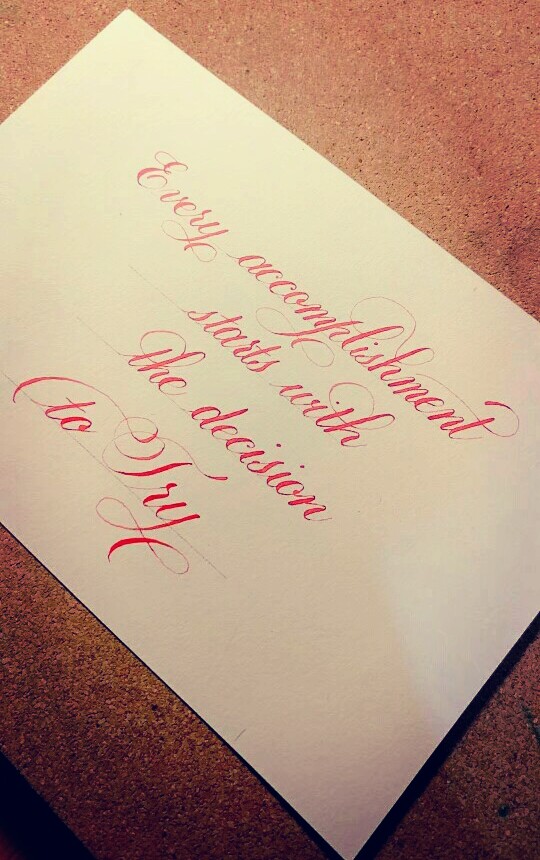 Every accomplishment
starts with
the decision
to Try